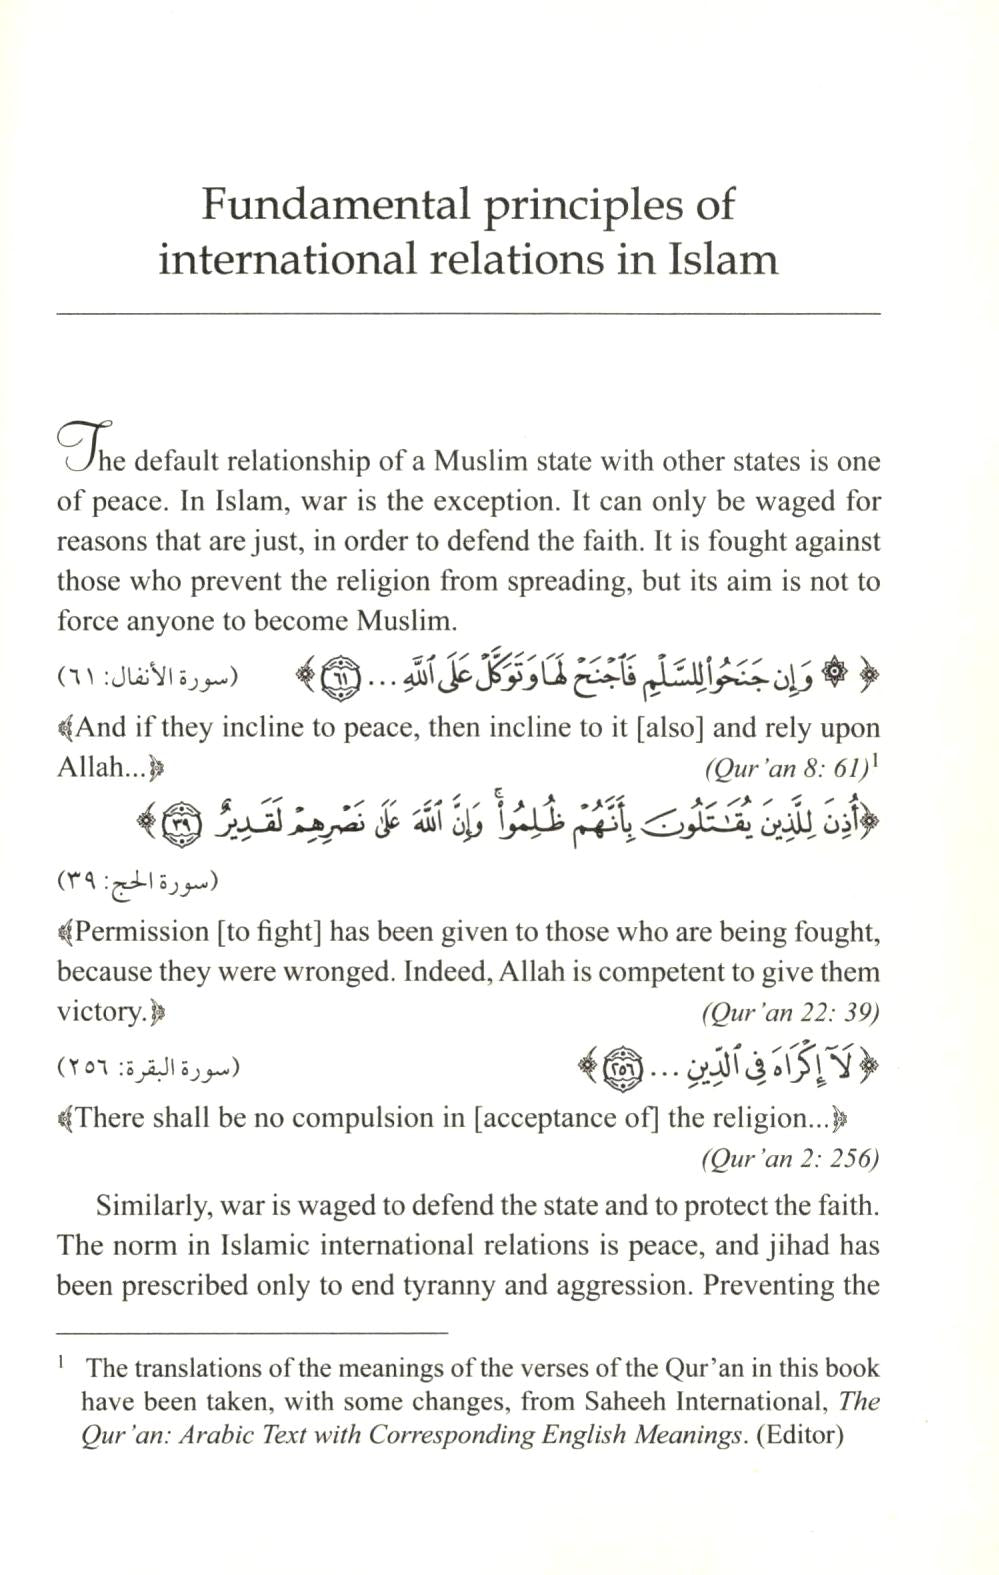 Fundamental principles of
international relations in Islam
The default relationship of a Muslim state with other states is one
of peace. In Islam, war is the exception. It can only be waged for
reasons that are just, in order to defend the faith. It is fought against
those who prevent the religion from spreading, but its aim is not to
force anyone to become Muslim.
﴿ ۞ وَإِن جَنَحُواْ لِلسَّلْمِ فَٱجْنَحْ لَهَا وَتَوَكَّلْ عَلَى ٱللَّهِ ... ٦١ ﴾ (سورة الأنفال: ٦١)
﴾And if they incline to peace, then incline to it [also] and rely upon
Allah...﴿ (Qur'an 8: 61)¹
﴿أُذِنَ لِلَّذِينَ يُقَـٰتَلُونَ بِأَنَّهُمْ ظُلِمُواْ ۚ وَإِنَّ ٱللَّهَ عَلَىٰ نَصْرِهِمْ لَقَدِيرٌ ٣٩ ﴾
(سورة الحج: ٣٩)
﴾Permission [to fight] has been given to those who are being fought,
because they were wronged. Indeed, Allah is competent to give them
victory.﴿ (Qur'an 22: 39)
﴿ لَآ إِكْرَاهَ فِى ٱلدِّينِ ... ٢٥٦ ﴾ (سورة البقرة: ٢٥٦)
﴾There shall be no compulsion in [acceptance of] the religion...﴿
(Qur'an 2: 256)
Similarly, war is waged to defend the state and to protect the faith.
The norm in Islamic international relations is peace, and jihad has
been prescribed only to end tyranny and aggression. Preventing the
¹ The translations of the meanings of the verses of the Qur'an in this book
have been taken, with some changes, from Saheeh International, The
Qur'an: Arabic Text with Corresponding English Meanings. (Editor)